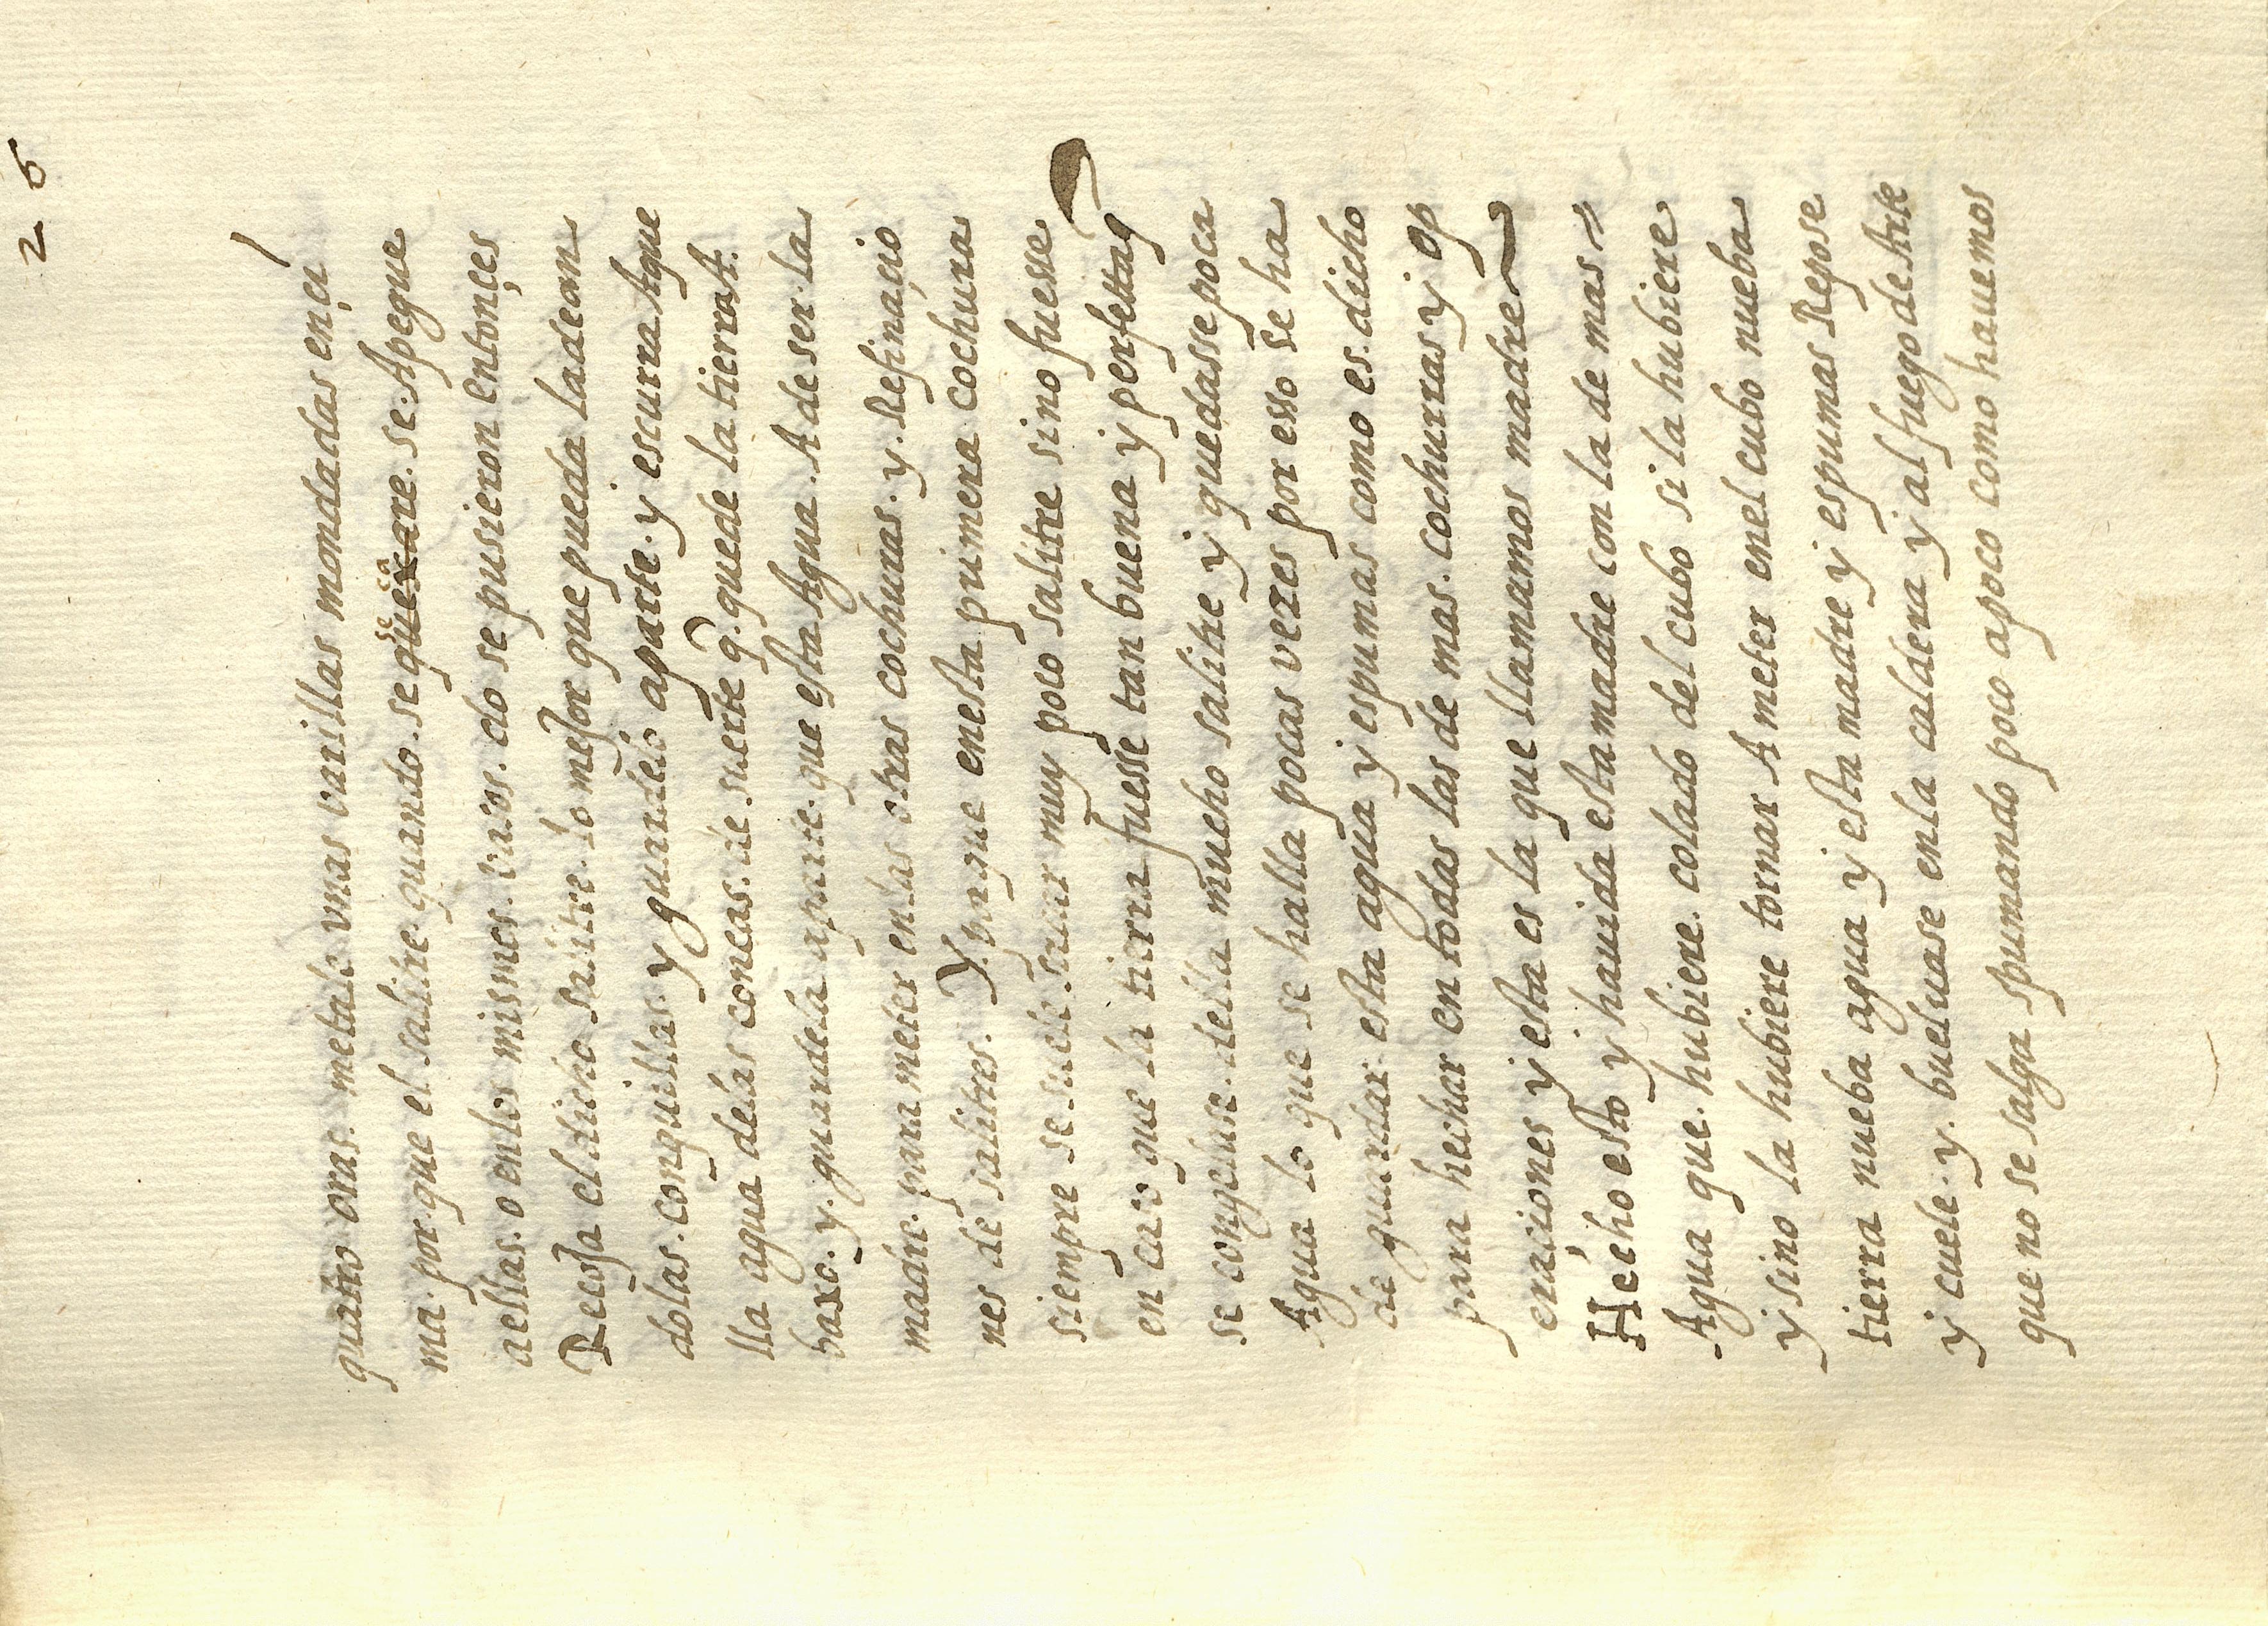 26
quatro oras. metale vnas varillas mondadas ençi
ma. por. que el salitre. quando. se quexare. se ca se. Apegue
aellas. o enlos mismos. vasos. do se pusieron entonçes
Recoja el dicho salitre. lo mejor que pueda ladeon
dolas. conquillas. y guardelo aparte. y escurra Aque
lla agua delas concas. de suerte q. quede la tierra A.
baxo. y. guardela aparte. que esta Agua. A de ser. la
madre. para meter enlas otras cochuras. y. Refinaçio
nes de salitres. Y. porque enesta primera cochura
siempre se suele sacar muy poco salitre sino fuesse
en caso que la tierra fuesse tan buena y perfetta q
se congelase. della mucho salitre y quedasse poca
Agua lo que se halla pocas vezes por esso se ha
de guardar. esta agua y espumas como es. dicho
para hechar en todas las de mas. cochurras y op
eraciones y esta es la que llamamos madre
Hecho esto y hauida esta madre con la de mas
Agua que. hubiere. colado del cubo si la hubiere
y sino la hubiere tornar A meter enel cubo nueba
tierra nueba agua y esta madre y espumas Repose
y cuele. y. bueluase enla caldera y al fuego de Arte
que no se salga spumando poco apoco como hauemos